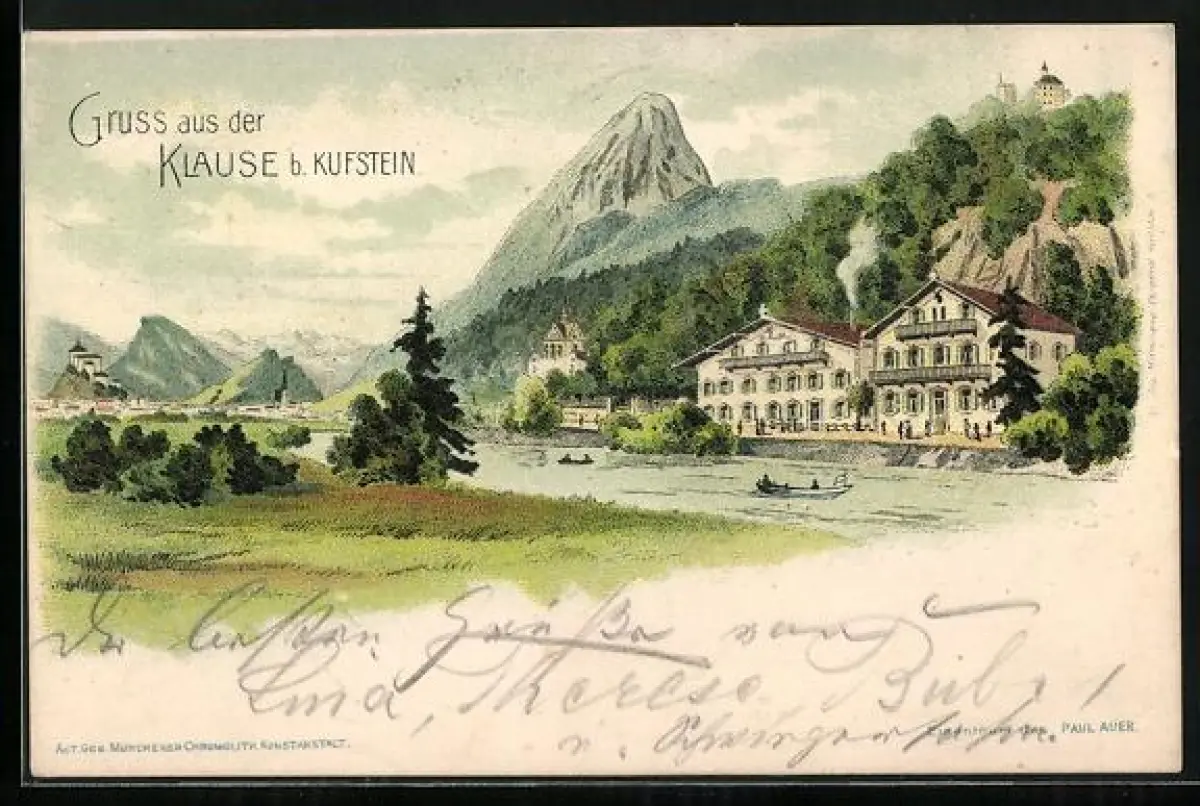 Gruss aus der
KLAUSE b. KUFSTEIN
Die besten Grüße von
Lina, Therese, Bub
u.
ACT. GES. MÜNCHENER CHROMOLITH. KUNSTANSTALT.
Eigenthum des PAUL AUER.